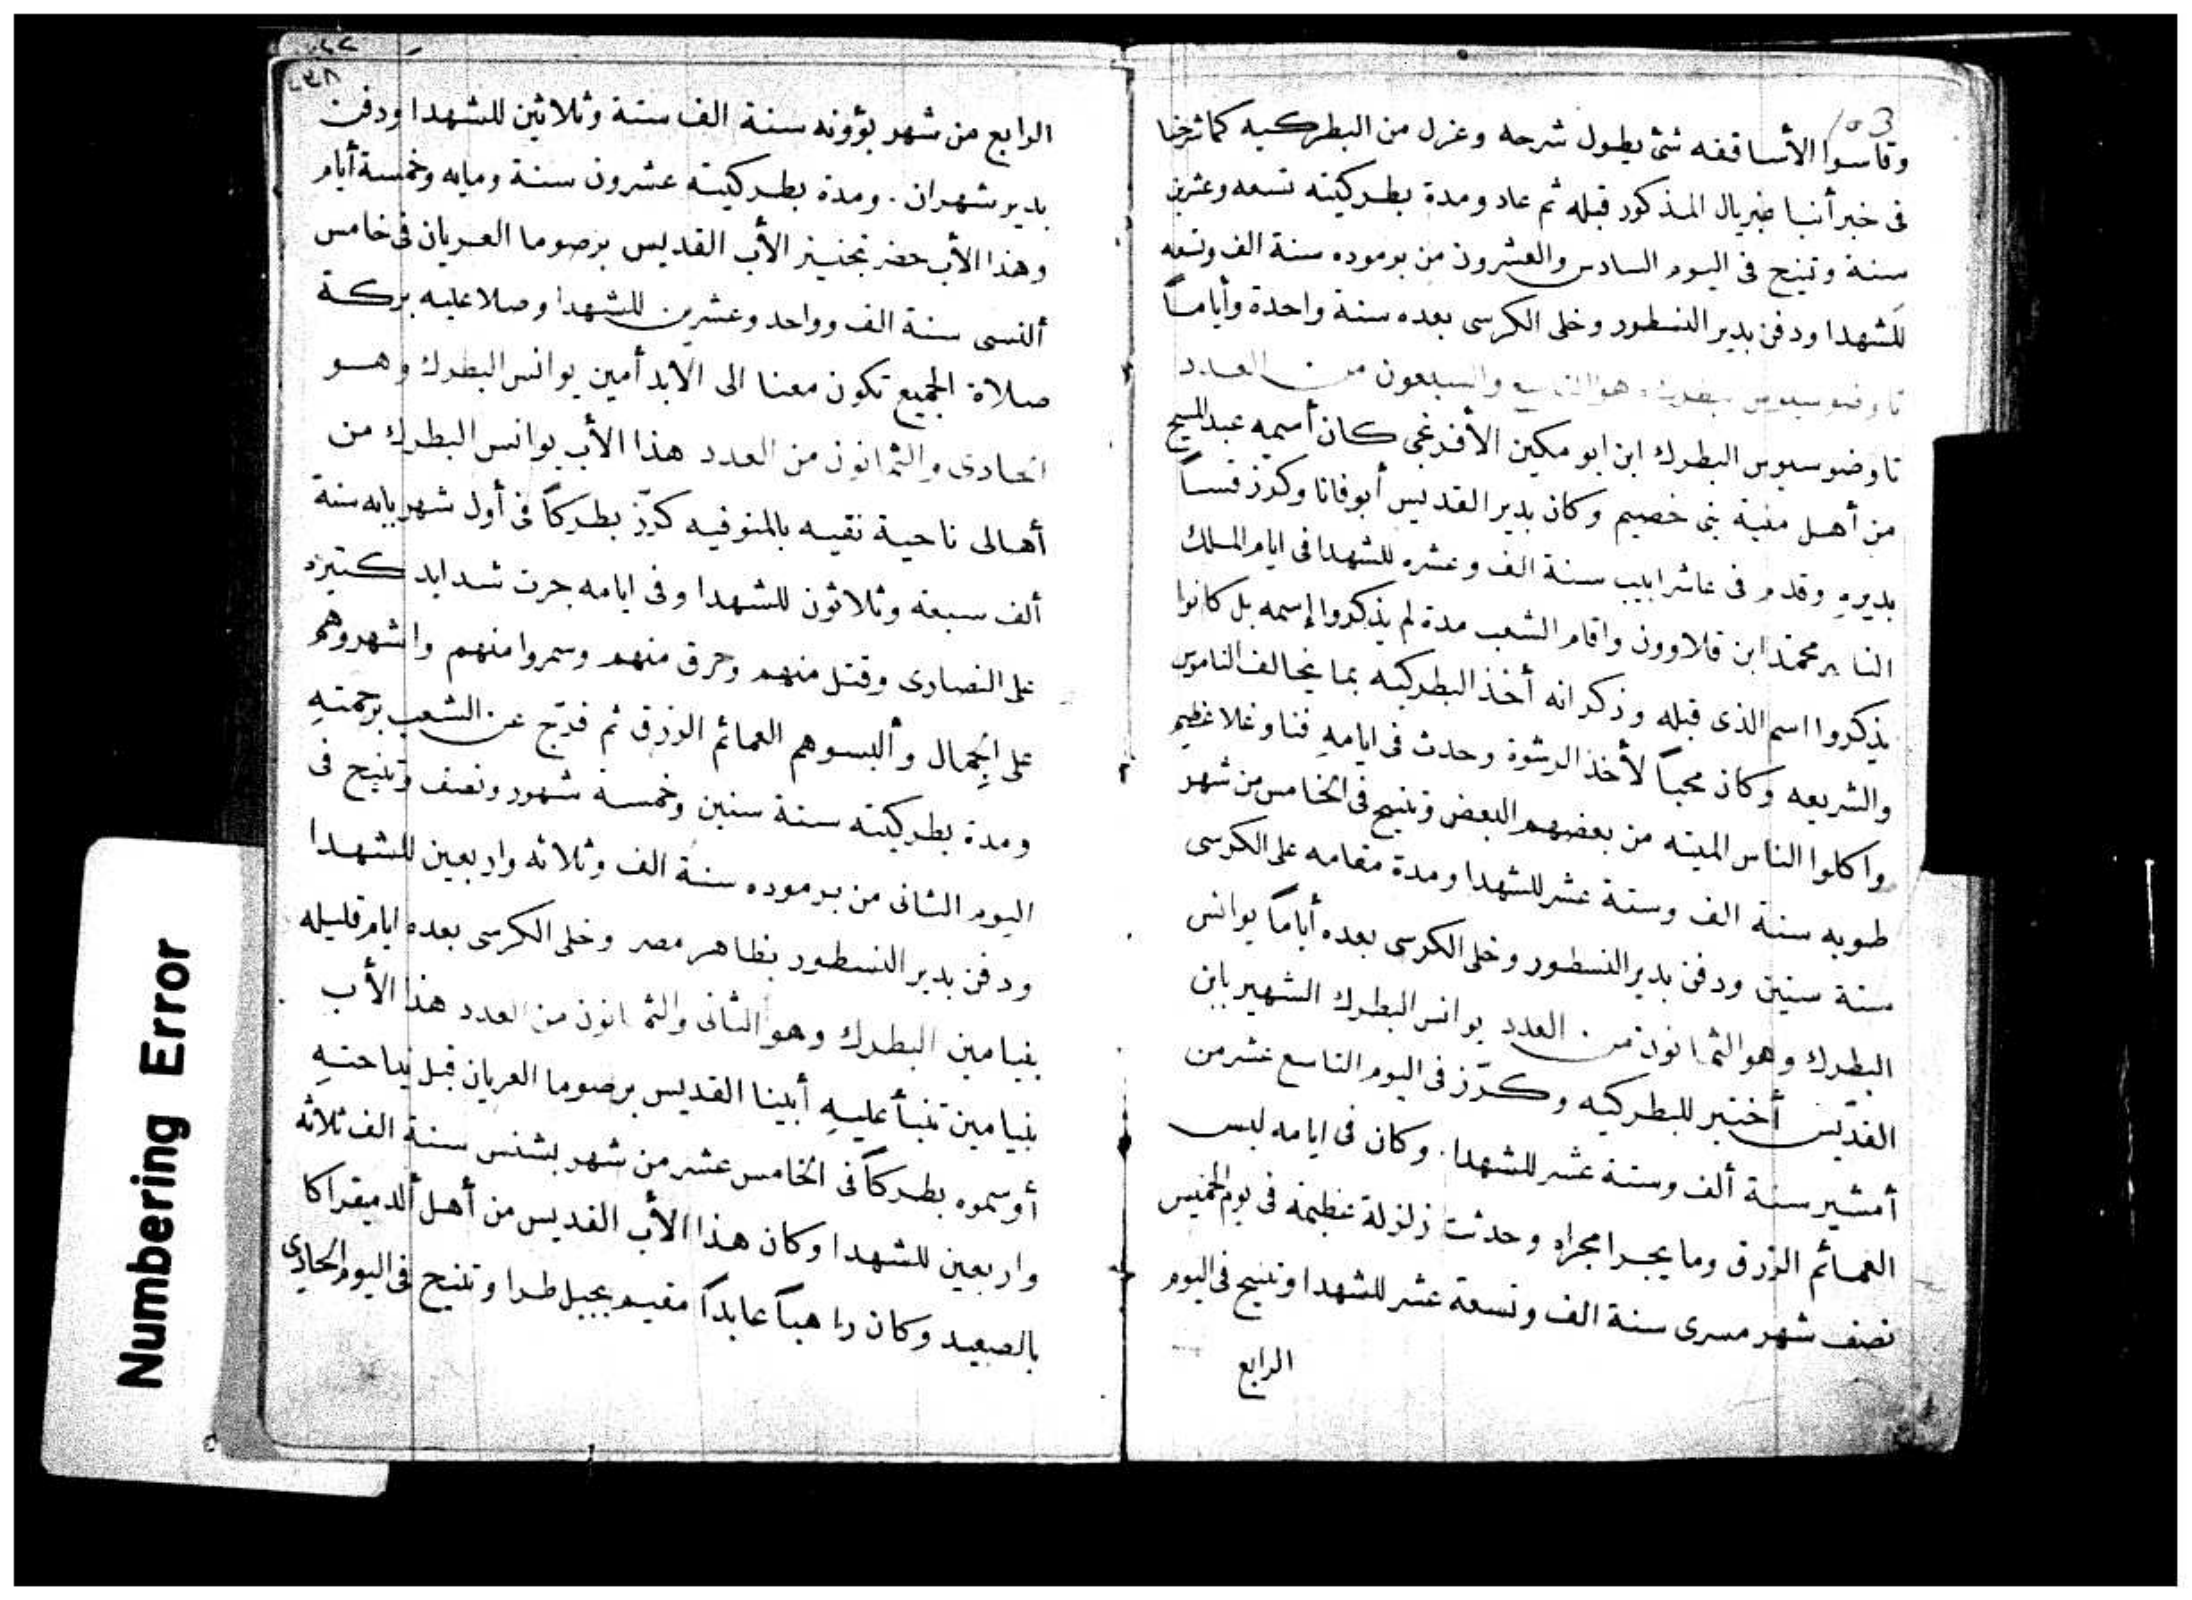 103
وقاسوا الأساقفه شئ يطول شرحه وعزل من البطركيه كما شرحنا
فى خبر أنبا غبريال المذكور قبله ثم عاد ومدة بطركيته تسعه وعشرين
سنة وتنيح فى اليوم السادس والعشرون من برموده سنة الف وتسعه
للشهدا ودفن بدير النسطور وخلى الكرسى بعده سنة واحدة وأياماً
تاوضوسيوس هو والسبعون من العدد
تاوضوسيوس البطرك ابن ابو مكين الأفرنجى كان أسمه عبد المسيح
من أهل منية بنى خصيم وكان بدير القديس أبوفانا وكرز قساً
بديره وقدم فى عاشر ابيب سنة الف وعشره للشهدا فى ايام الملك
محمد ابن قلاوون واقام الشعب مدة لم يذكروا إسمه بل كانوا
يذكروا اسم الذى قبله وذكر انه أخذ البطركيه بما يخالف الناموس
والشريعه وكان محباً لأخذ الرشوة وحدث فى ايامهِ فنا وغلا عظيم
واكلوا الناس الميته من بعضهم البعض وتنيح فى الخامس من شهر
طوبه سنة الف وستة عشر للشهدا ومدة مقامه على الكرسى
ستة سنين ودفن بدير النسطور وخلى الكرسى بعده أياماً يوانس
البطرك وهو الثمانون من العدد يوانس البطرك الشهير بابن
القديس أختير للبطركيه وكرّز فى اليوم التاسع عشر من
أمشير سنة ألف وستة عشر للشهدا. وكان فى ايامه لبس
العمائم الزرق وما يجرا مجراه وحدثت زلزلة عظيمة فى يوم الخميس
نصف شهر مسرى سنة الف وتسعة عشر للشهدا وتنيح فى اليوم
الرابع
الرابع من شهر بؤونه سنة الف ستة وثلاثين للشهدا ودفن
بدير شهران. ومدة بطركيته عشرون سنة ومايه وخمسة أيام
وهذا الأب حضر تجنيز الأب القديس برصوما العريان فى خامس
ألنسى سنة الف وواحد وعشرين للشهدا وصلا عليه بركة
صلاة الجميع تكون معنا الى الابد أمين يوانس البطرك وهو
الحادى والثمانون من العدد هذا الأب يوانس البطرك من
أهالى ناحية نقيه بالمنوفيه كرّز بطركاً فى أول شهر بابه سنة
ألف سبعة وثلاثون للشهدا وفى ايامه جرت شدايد كتيره
على النصارى وقتل منهم وحرق منهم وسمروا منهم واشهروهم
على الجِمال وألبسوهم العمائم الزرق ثم فرّج عن الشعب برحمتهِ
ومدة بطركيته ستة سنين وخمسة شهور ونصف وتنيح فى
اليوم الثانى من برموده سنة الف وثلاثه واربعين للشهدا
ودفن بدير النسطور بظاهر مصر وخلى الكرسى بعده ايام قليله
بنيامين البطرك وهو الثانى والثمانون من العدد هذا الأب
بنيامين تنبأ عليهِ أبينا القديس برصوما العريان قبل نياحتهِ
أوسموه بطركاً فى الخامس عشر من شهر بشنس سنة الف ثلاثه
واربعين للشهدا وكان هذا الأب القديس من أهل ألدميقراكا
بالصعيد وكان راهباً عابداً مقيم بجبل طرا وتنيح فى اليوم الحادى
Numbering Error